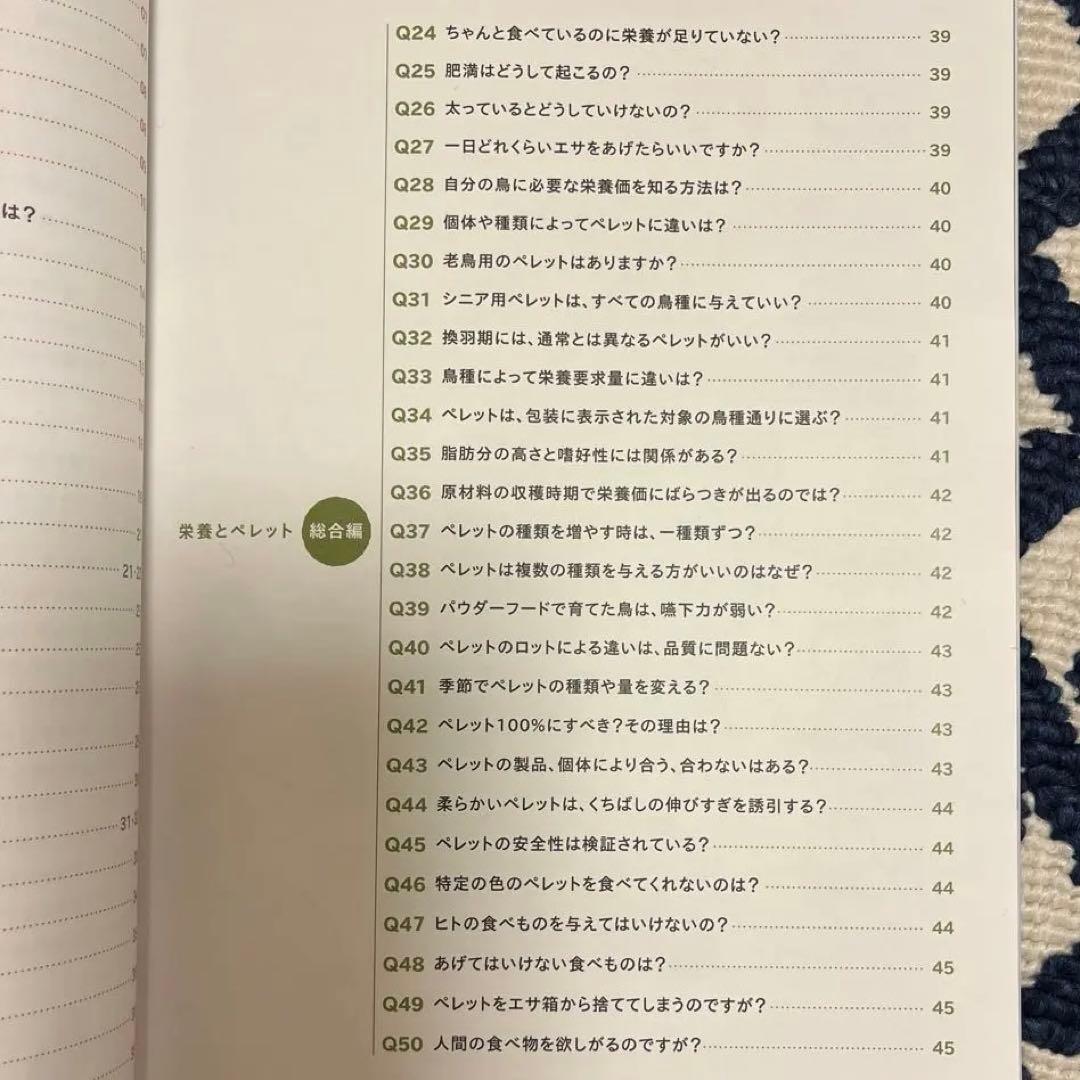 は？
21
31
栄養とペレット 総合編
Q24 ちゃんと食べているのに栄養が足りていない？ 39
Q25 肥満はどうして起こるの？ 39
Q26 太っているとどうしていけないの？ 39
Q27 一日どれくらいエサをあげたらいいですか？ 39
Q28 自分の鳥に必要な栄養価を知る方法は？ 40
Q29 個体や種類によってペレットに違いは？ 40
Q30 老鳥用のペレットはありますか？ 40
Q31 シニア用ペレットは、すべての鳥種に与えていい？ 40
Q32 換羽期には、通常とは異なるペレットがいい？ 41
Q33 鳥種によって栄養要求量に違いは？ 41
Q34 ペレットは、包装に表示された対象の鳥種通りに選ぶ？ 41
Q35 脂肪分の高さと嗜好性には関係がある？ 41
Q36 原材料の収穫時期で栄養価にばらつきが出るのでは？ 42
Q37 ペレットの種類を増やす時は、一種類ずつ？ 42
Q38 ペレットは複数の種類を与える方がいいのはなぜ？ 42
Q39 パウダーフードで育てた鳥は、嚥下力が弱い？ 42
Q40 ペレットのロットによる違いは、品質に問題ない？ 43
Q41 季節でペレットの種類や量を変える？ 43
Q42 ペレット100%にすべき？その理由は？ 43
Q43 ペレットの製品、個体により合う、合わないはある？ 43
Q44 柔らかいペレットは、くちばしの伸びすぎを誘引する？ 44
Q45 ペレットの安全性は検証されている？ 44
Q46 特定の色のペレットを食べてくれないのは？ 44
Q47 ヒトの食べものを与えてはいけないの？ 44
Q48 あげてはいけない食べものは？ 45
Q49 ペレットをエサ箱から捨ててしまうのですが？ 45
Q50 人間の食べ物を欲しがるのですが？ 45